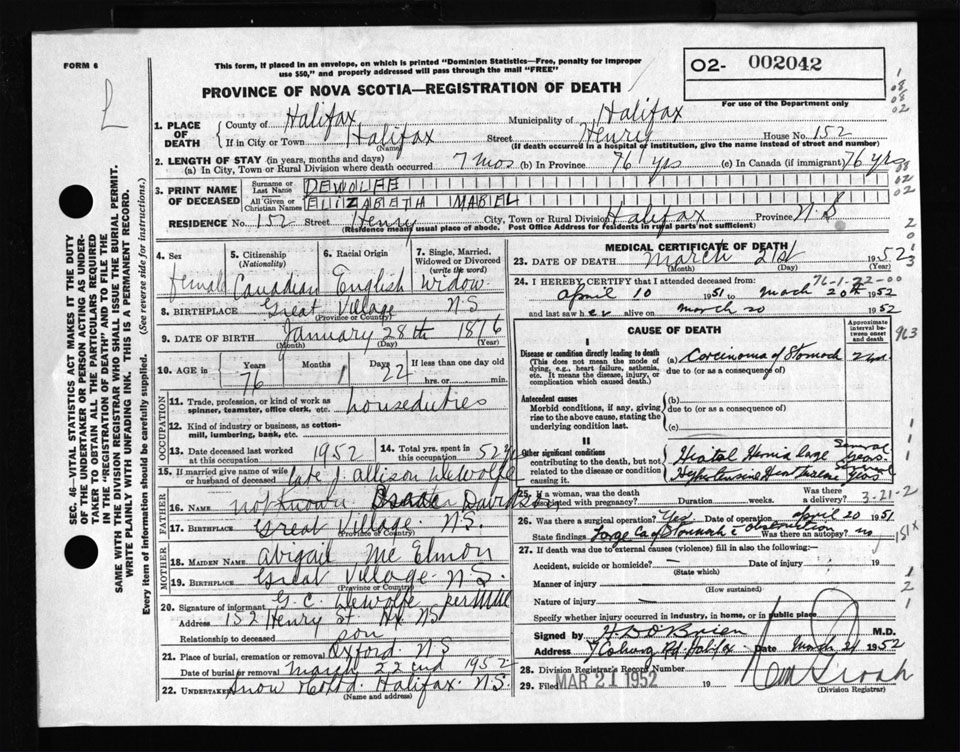 FORM 6
This form, if placed in an envelope, on which is printed "Dominion Statistics—Free, penalty for improper
use $50," and properly addressed will pass through the mail "FREE"
O2- 002042
For use of the Department only
PROVINCE OF NOVA SCOTIA—REGISTRATION OF DEATH
L
SEC. 46—VITAL STATISTICS ACT MAKES IT THE DUTY
OF THE UNDERTAKER OR PERSON ACTING AS UNDER-
TAKER TO OBTAIN ALL THE PARTICULARS REQUIRED
IN THE "REGISTRATION OF DEATH" AND TO FILE THE
SAME WITH THE DIVISION REGISTRAR WHO SHALL ISSUE THE BURIAL PERMIT.
WRITE PLAINLY WITH UNFADING INK. THIS IS A PERMANENT RECORD.
Every item of information should be carefully supplied. (See reverse side for instructions.)
1. PLACE OF DEATH
County of Halifax Municipality of Halifax
If in City or Town Halifax Street Henry House No. 152
(Name) (If death occurred in a hospital or institution, give the name instead of street and number)
2. LENGTH OF STAY (in years, months and days)
(a) In City, Town or Rural Division where death occurred 7 mos (b) In Province 76 yrs (c) In Canada (if immigrant) 76 yrs
3. PRINT NAME OF DECEASED
Surname or Last Name DEWOLFE
All Given or Christian Names ELIZABETH MABEL
RESIDENCE No. 152 Street Henry City, Town or Rural Division Halifax Province N.S
(Residence means usual place of abode. Post Office Address for residents in rural parts not sufficient)
4. Sex female
5. Citizenship (Nationality) Canadian
6. Racial Origin English
7. Single, Married, Widowed or Divorced (write the word) Widow
8. BIRTHPLACE Great Village N S
(Province or Country)
9. DATE OF BIRTH January 28th 1876
(Month) (Day) (Year)
10. AGE in Years 76 Months 1 Days 22 If less than one day old hrs. or min.
OCCUPATION
11. Trade, profession, or kind of work as spinner, teamster, office clerk, etc. houseduties
12. Kind of industry or business, as cotton-mill, lumbering, bank, etc.
13. Date deceased last worked at this occupation 1952
14. Total yrs. spent in this occupation 52 yrs
15. If married give name of wife or husband of deceased late J. Allison DeWolfe
FATHER
16. Name not known Isaac Davidson
17. Birthplace Great Village. N.S.
(Province or Country)
MOTHER
18. MAIDEN NAME Abigail McElmon
19. BIRTHPLACE Great Village. N.S.
(Province or Country)
20. Signature of informant G. C. DeWolfe per
Address 152 Henry St Hx NS
Relationship to deceased son
21. Place of burial, cremation or removal Oxford. N S
Date of burial or removal March 22nd 1952
22. Undertaker Snow Halifax. N.S.
(Name and address)
MEDICAL CERTIFICATE OF DEATH
23. DATE OF DEATH March 21st 1952
(Month) (Day) (Year)
24. I HEREBY CERTIFY that I attended deceased from: 76-1-22-00
April 10 1951 to March 20th 1952
and last saw her alive on March 20 1952
CAUSE OF DEATH
Approximate interval between onset and death
I
Disease or condition directly leading to death (a) Carcinoma of Stomach 2 yrs.
(This does not mean the mode of dying, e.g., heart failure, asthenia, etc. It means the disease, injury, or complication which caused death.)
due to (or as a consequence of)
Antecedent causes
Morbid conditions, if any, giving rise to the above cause, stating the underlying condition last.
(b)
due to (or as a consequence of)
(c)
II
Other significant conditions
contributing to the death, but not related to the disease or condition causing it.
Hiatal Hernia large Several years.
Hypertensive Heart Disease Several years
25. If a woman, was the death associated with pregnancy? Duration weeks. Was there a delivery? 3-21-2
26. Was there surgical operation? Yes Date of operation April 20 1951
State findings Large Ca of Stomach c obstruction Was there an autopsy? no
151x
963
27. If death was due to external causes (violence) fill in also the following:—
Accident, suicide or homicide? — Date of injury 19
(State which)
Manner of injury
(How sustained)
Nature of injury —
Specify whether injury occurred in industry, in home, or in public place
Signed by H D O'Brien M.D.
Address 7 Coburg Rd. Halifax Date March 21 1952
28. Division Registrar's Record Number
29. Filed MAR 21 1952 19
(Division Registrar)